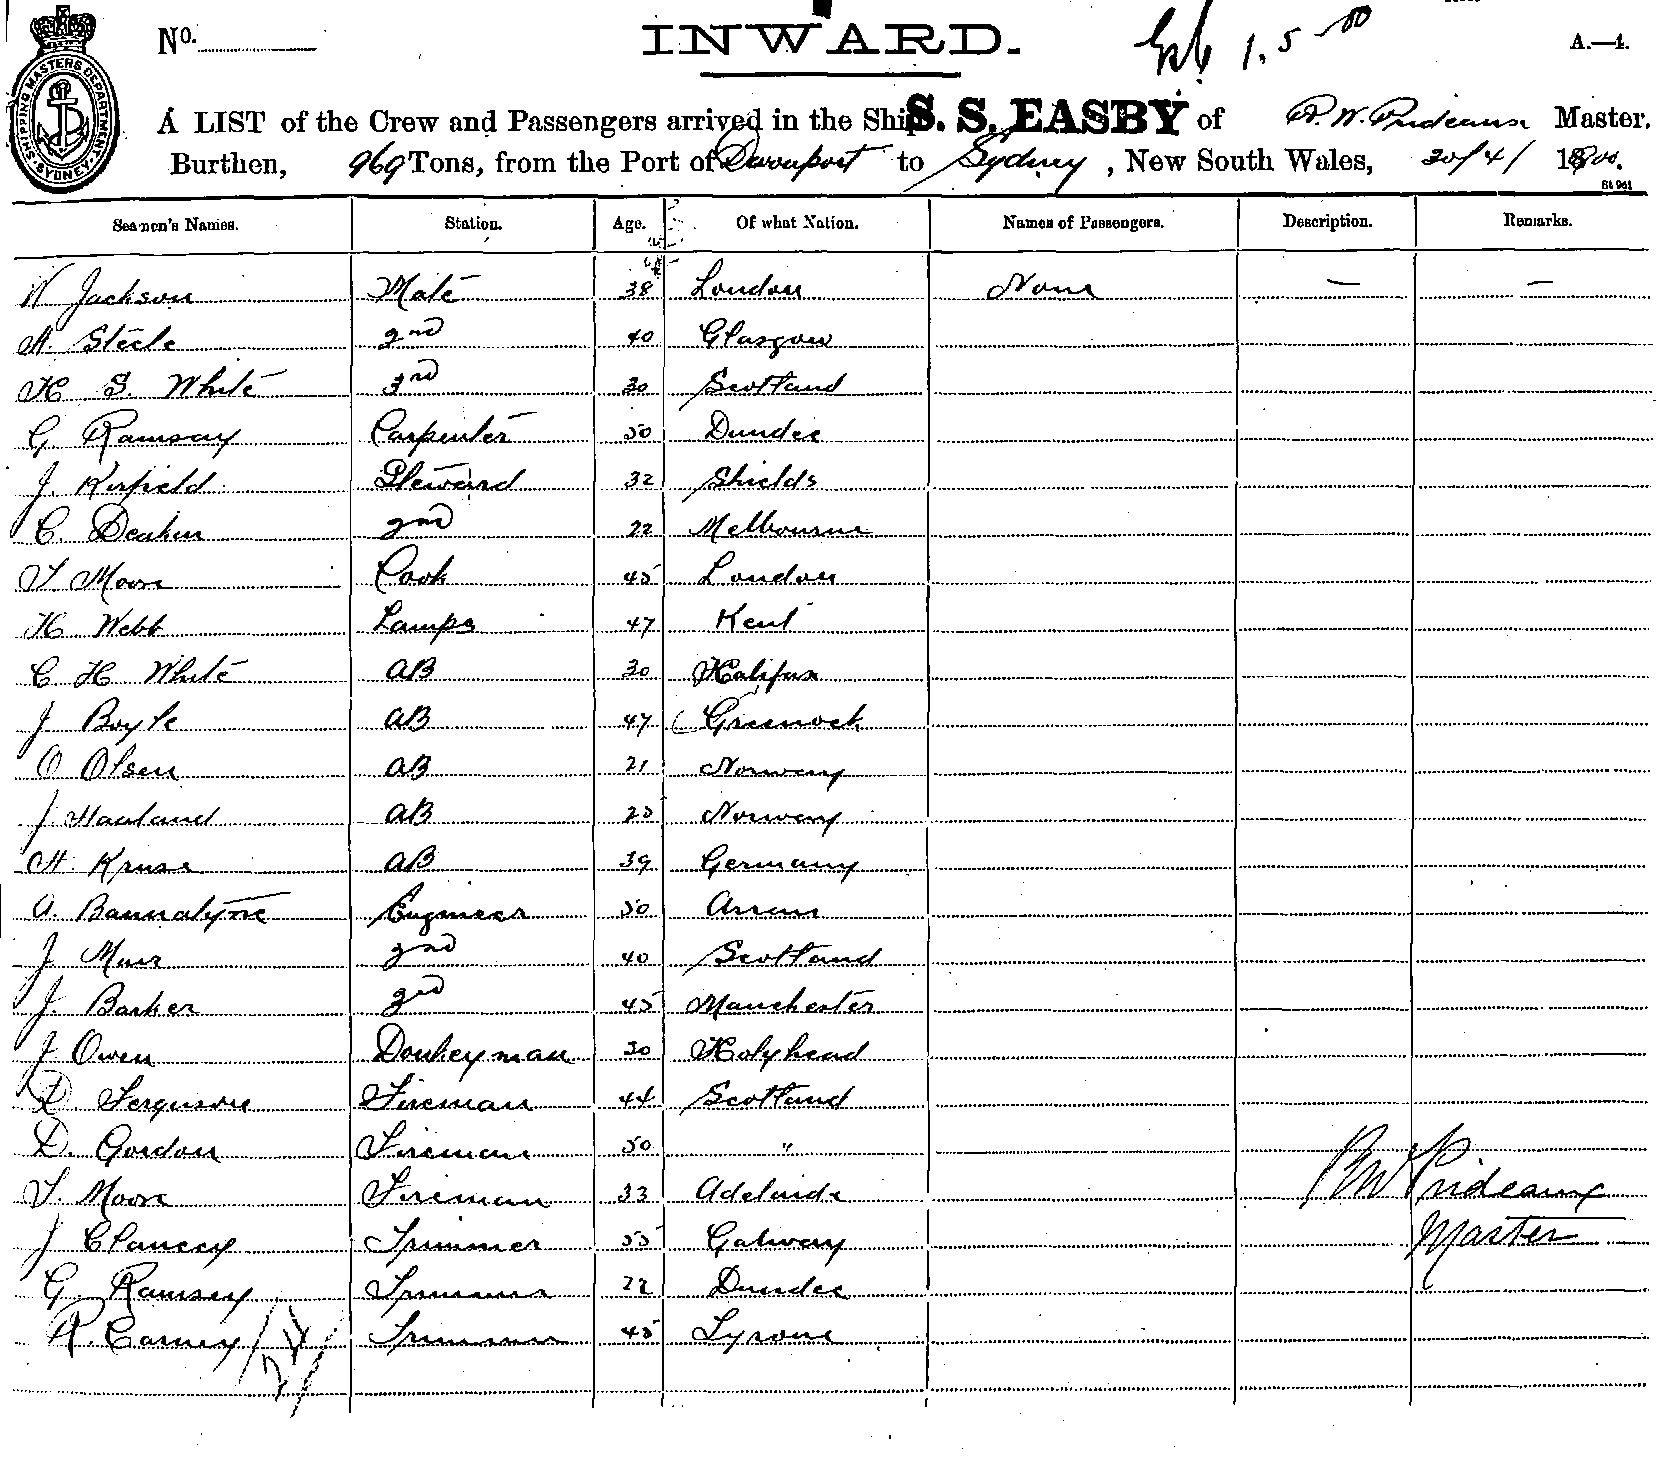 No. INWARD. 1. 5 00 A.—4.
SHIPPING MASTERS DEPARTMENT SYDNEY
A LIST of the Crew and Passengers arrived in the Ship S. S. EASBY of R. W. Prideaux Master,
Burthen, 969 Tons, from the Port of Devonport to Sydney, New South Wales, 30/4/ 1900.
Seamen's Names. Station. Age. Of what Nation. Names of Passengers. Description. Remarks.
W Jackson Mate 38 London None — —
A. Steele 2nd 40 Glasgow
H S. White 3rd 30 Scotland
G Ramsay Carpenter 50 Dundee
J. Kirfield Steward 32 Shields
C. Deakin 2nd 22 Melbourne
T Moore Cook 45 London
H Webb Lamps 47 Kent
C H White AB 30 Halifax
J Boyle AB 47 Greenock
O Olsen AB 21 Norway
J Hauland AB 23 Norway
H. Kruse AB 39 Germany
A. Bannatyne Engineer 50 Arran
J Muir 2nd 40 Scotland
J. Barker 3rd 45 Manchester
J Owen Donkeyman 30 Holyhead
D. Ferguson Fireman 44 Scotland
D. Gordon Fireman 50 "
T. Moore Fireman 33 Adelaide
J Clancey Trimmer 55 Galway
G Ramsey Trimmer 22 Dundee
R. Carney Trimmer 45 Tyrone
24
RW Prideaux
Master